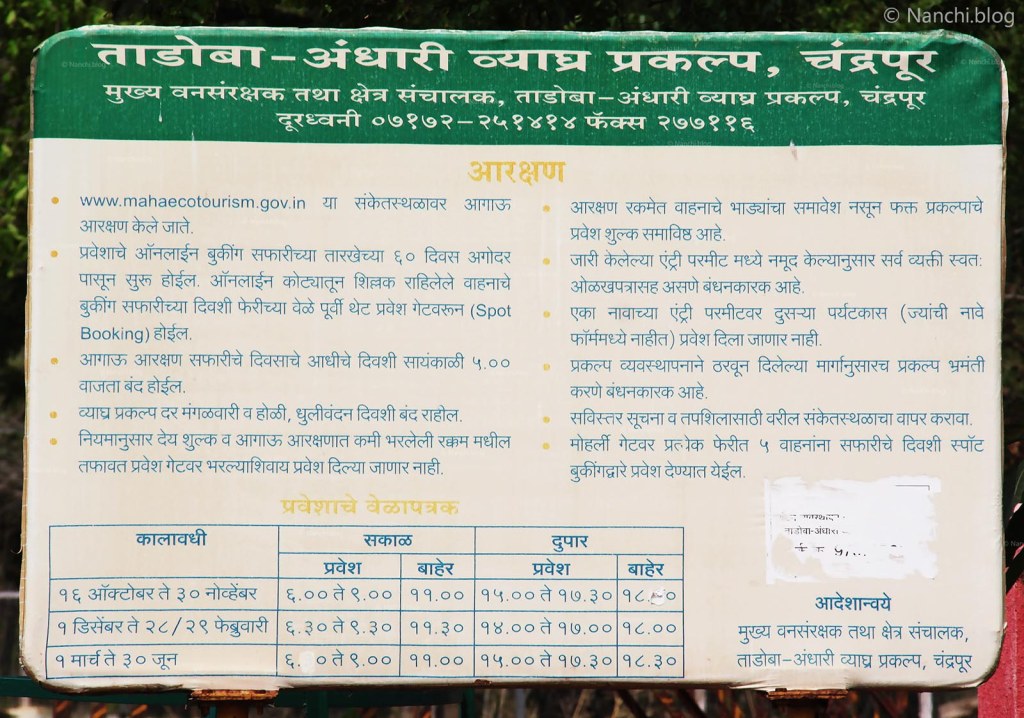 © Nanchi.blog
ताडोबा–अंधारी व्याघ्र प्रकल्प, चंद्रपूर
मुख्य वनसंरक्षक तथा क्षेत्र संचालक, ताडोबा–अंधारी व्याघ्र प्रकल्प, चंद्रपूर
दूरध्वनी ०७१७२–२५१४१४ फॅक्स २७७११६
आरक्षण
• www.mahaecotourism.gov.in या संकेतस्थळावर आगाऊ
आरक्षण केले जाते.
• प्रवेशाचे ऑनलाईन बुकींग सफारीच्या तारखेच्या ६० दिवस अगोदर
पासून सुरू होईल. ऑनलाईन कोट्यातून शिल्लक राहिलेले वाहनाचे
बुकींग सफारीच्या दिवशी फेरीच्या वेळे पूर्वी थेट प्रवेश गेटवरून (Spot
Booking) होईल.
• आगाऊ आरक्षण सफारीचे दिवसाचे आधीचे दिवशी सायंकाळी ५.००
वाजता बंद होईल.
• व्याघ्र प्रकल्प दर मंगळवारी व होळी, धुलीवंदन दिवशी बंद राहील.
• नियमानुसार देय शुल्क व आगाऊ आरक्षणात कमी भरलेली रक्कम मधील
तफावत प्रवेश गेटवर भरल्याशिवाय प्रवेश दिल्या जाणार नाही.
• आरक्षण रकमेत वाहनाचे भाड्यांचा समावेश नसून फक्त प्रकल्पाचे
प्रवेश शुल्क समाविष्ठ आहे.
• जारी केलेल्या एंट्री परमीट मध्ये नमूद केल्यानुसार सर्व व्यक्ती स्वत:
ओळखपत्रासह असणे बंधनकारक आहे.
• एका नावाच्या एंट्री परमीटवर दुसऱ्या पर्यटकास (ज्यांची नावे
फॉर्ममध्ये नाहीत) प्रवेश दिला जाणार नाही.
• प्रकल्प व्यवस्थापनाने ठरवून दिलेल्या मार्गानुसारच प्रकल्प भ्रमंती
करणे बंधनकारक आहे.
• सविस्तर सूचना व तपशिलासाठी वरील संकेतस्थळाचा वापर करावा.
• मोहर्ली गेटवर प्रत्येक फेरीत ५ वाहनांना सफारीचे दिवशी स्पॉट
बुकींगद्वारे प्रवेश देण्यात येईल.
प्रवेशाचे वेळापत्रक
कालावधी सकाळ दुपार
प्रवेश बाहेर प्रवेश बाहेर
१६ ऑक्टोबर ते ३० नोव्हेंबर ६.०० ते ९.०० ११.०० १५.०० ते १७.३०
१ डिसेंबर ते २८/२९ फेब्रुवारी ६.३० ते ९.३० ११.३० १४.०० ते १७.०० १८.००
१ मार्च ते ३० जून ते ९.०० ११.०० १५.०० ते १७.३० १८.३०
ताडोबा-अंधारी
आदेशान्वये
मुख्य वनसंरक्षक तथा क्षेत्र संचालक,
ताडोबा–अंधारी व्याघ्र प्रकल्प, चंद्रपूर